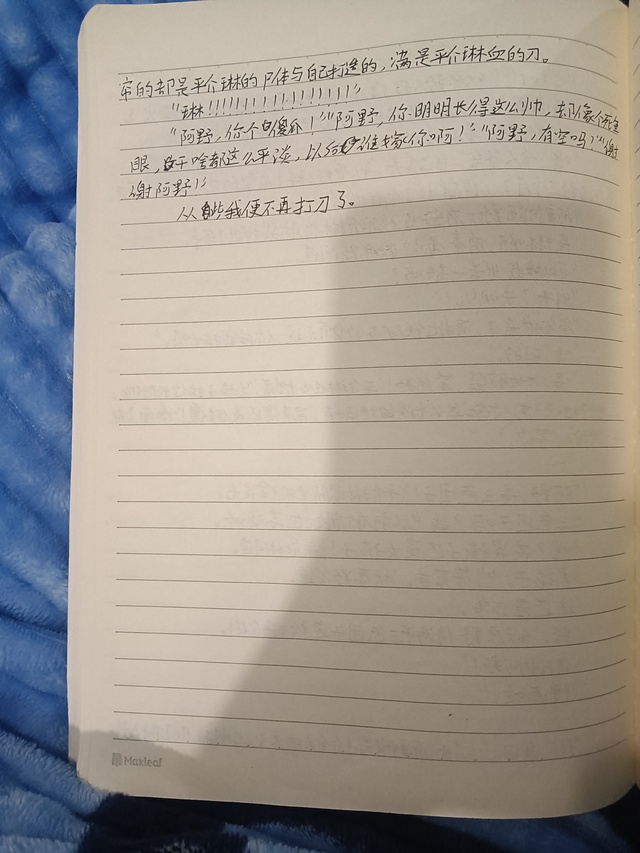 穿的都是平介琳的尸体与自己打造的,满是平介琳血的刀。
“琳!!!!!!!!!!!!!!!!!”
“阿野,你个傻瓜!”“阿野,你明明长得这么帅,却像个死鱼
眼,干啥都这么平淡,以后谁嫁你啊!”“阿野,有空吗?”“谢
谢阿野!”
从此我便不再打刀了。
Maxleaf